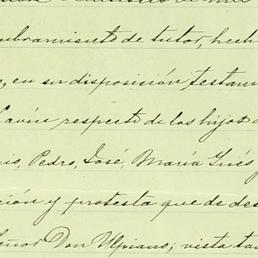 nombramiento de tutor, hech
en su disposición testam
Lavín respecto de los hijos
Pedro, José, María Inés y
ción y protesta que de des
Señor Don Mariano; vista tam